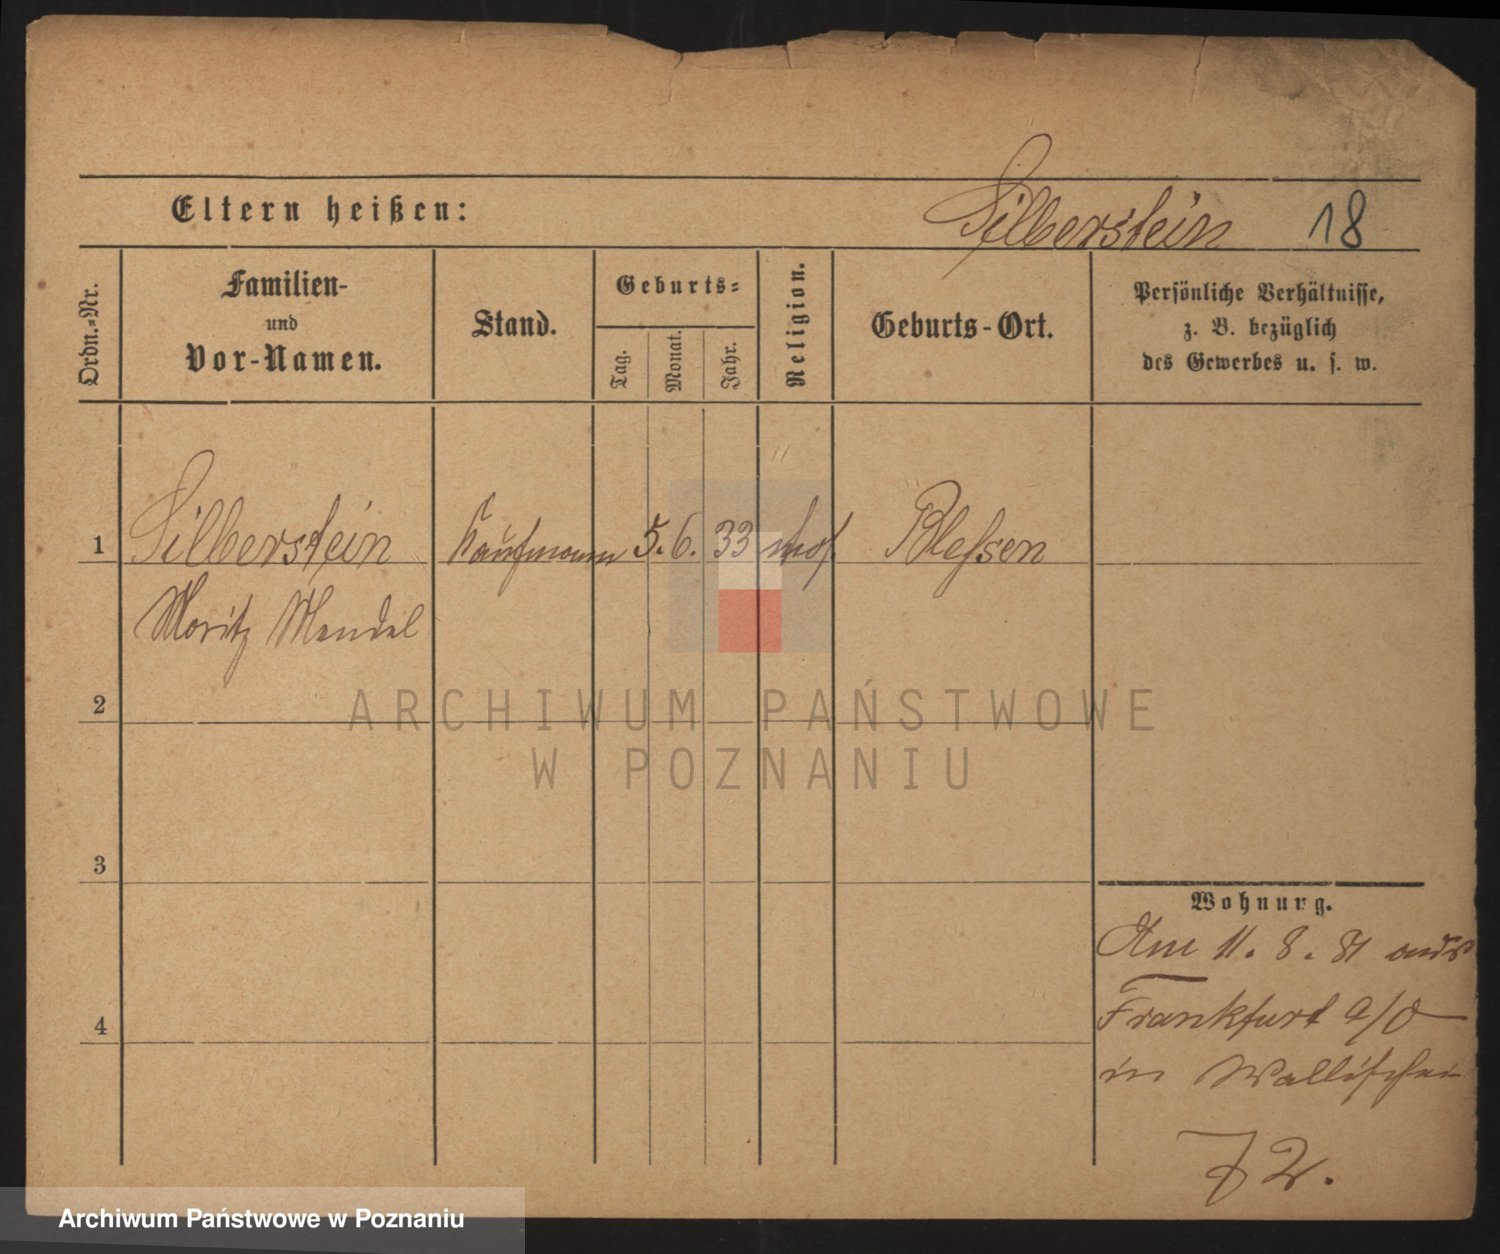 Eltern heißen:
Silberstein 18
Ordn.=Nr.
Familien-
und
Vor-Namen.
Stand.
Geburts=
Tag.
Monat.
Jahr.
Religion.
Geburts-Ort.
Persönliche Verhältnisse,
z. B. bezüglich
des Gewerbes u. s. w.
1 Silberstein Kaufmann 5. 6. 33 mos. Blessen
Moritz Mendel
2
3
4
Wohnung.
Am 11. 8. 81 aus
Frankfurt a/O
in Wallischei
72.
ARCHIWUM PAŃSTWOWE
W POZNANIU
Archiwum Państwowe w Poznaniu